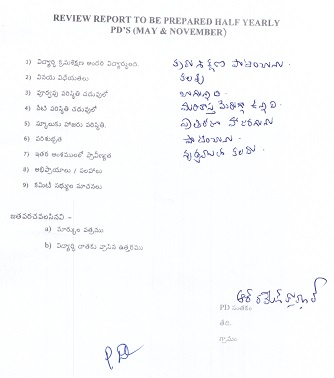 REVIEW REPORT TO BE PREPARED HALF YEARLY
PD'S (MAY & NOVEMBER)
1) విద్యార్థి క్రమశిక్షణ అందరి విద్యార్థులకు. క్రమశిక్షణ పాటించును
2) వినయ విధేయతలు కలవు
3) పూర్వపు పరిస్థితి చదువులో బాగున్నది
4) నేటి పరిస్థితి చదువులో మెరుగ్గా ఉన్నది
5) స్కూలుకు హాజరు పరిస్థితి.
6) పరిశుభ్రత పాటించును
7) ఇతర అంశములలో ప్రావీణ్యత
8) అభిప్రాయాలు / సలహాలు
9) కమిటీ సభ్యుల సూచనలు
జతపరచవలసినవి -
a) మార్కుల పత్రము
b) విద్యార్థి దాతకు వ్రాసిన ఉత్తరము
PD సంతకం
తేది.
గ్రామం